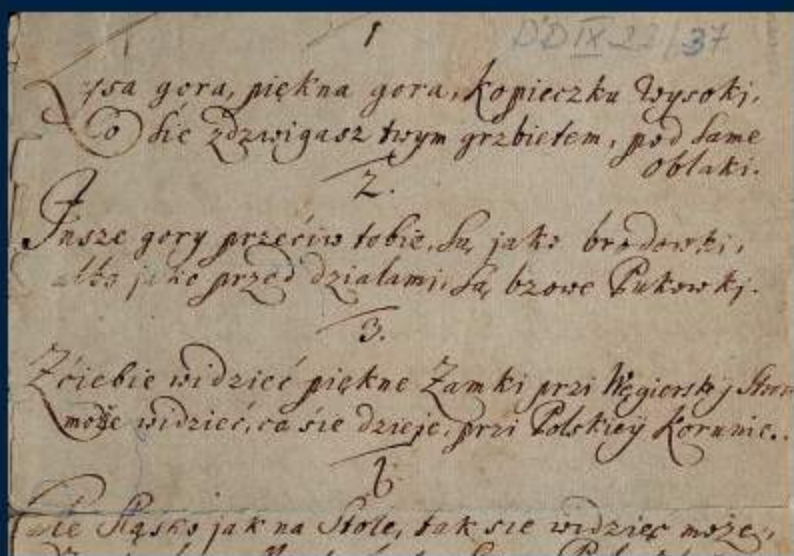 1
DD IX 22/37
Łysa gora, piękna gora, kopieczku wysoki,
Co sie zdzwigasz twym grzbietem, pod same
obłaki.
2.
Insze gory przećiw tobie, są, jako brodowki,
jako przed działami, są, bzowe Pukowki.
3.
Zćiebie widzieć piękne Zamki przi Węgierskij
może widzieć, co sie dzieje, przi Polskiey Korunie..
Sląsko jak na Stole, tak sie widzieć może,